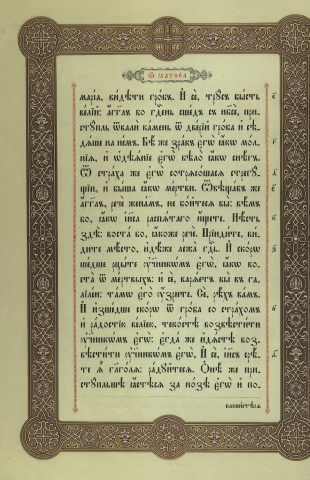 Ѿ МАТѲЕА
марі́а, ви́дѣти гро́бъ. И҆ сѐ, трꙋ́съ бы́сть
ве́лій: а҆́гг҃лъ бо гд҇ень сше́дъ съ нб҃сѐ, при-
стꙋ́пль ѿвалѝ ка́мень ѿ две́рій гро́ба и҆ сѣ-
дѧ́ше на не́мъ. Бѣ́ же зра́къ є҆гѡ̀ ꙗ҆́кѡ мо́л-
нїѧ, и҆ ѡ҆дѣѧ́нїе є҆гѡ̀ бѣло̀ ꙗ҆́кѡ снѣ́гъ.
Ѿ стра́ха же є҆гѡ̀ сотрѧсо́шасѧ стрегꙋ́-
щїи, и҆ бы́ша ꙗ҆́кѡ ме́ртви. Ѿвѣща́въ же
а҆́гг҃лъ, речѐ жена́мъ, не бо́йтесѧ вы̀: вѣ́мъ
бо, ꙗ҆́кѡ і҆и҃са распѧ́таго и҆́щете. Нѣ́сть
здѣ̀: воста́ бо, ꙗ҆́коже речѐ. Прїиди́те, ви́-
дите мѣ́сто, и҆дѣ́же лежа̀ гд҇ь. И҆ ско́рѡ
ше́дше рцы́те ᲂу҆чн҃кѡ́мъ є҆гѡ̀, ꙗ҆́кѡ вос-
та̀ ѿ ме́ртвыхъ: и҆ сѐ, варѧ́етъ вы̀ въ га-
лїле́и: та́мѡ є҆го̀ ᲂу҆́зрите. Сѐ, рѣ́хъ ва́мъ.
И҆ и҆зше́дше ско́рѡ ѿ гро́ба со стра́хомъ
и҆ ра́достїю ве́лїею, теко́стѣ возвѣсти́ти
ᲂу҆чн҃кѡ́мъ є҆гѡ̀: є҆гда́ же и҆дѧ́стѣ воз-
вѣсти́ти ᲂу҆чн҃кѡ́мъ є҆гѡ̀, И҆ сѐ, і҆и҃съ срѣ́-
те ѧ҆̀ гл҃го́лѧ: ра́дꙋйтесѧ. Ѻ҆нѣ́ же при-
стꙋ́пльшѣ ꙗ҆́стѣсѧ за но́зѣ є҆гѡ̀ и҆ по-
клони́стѣсѧ